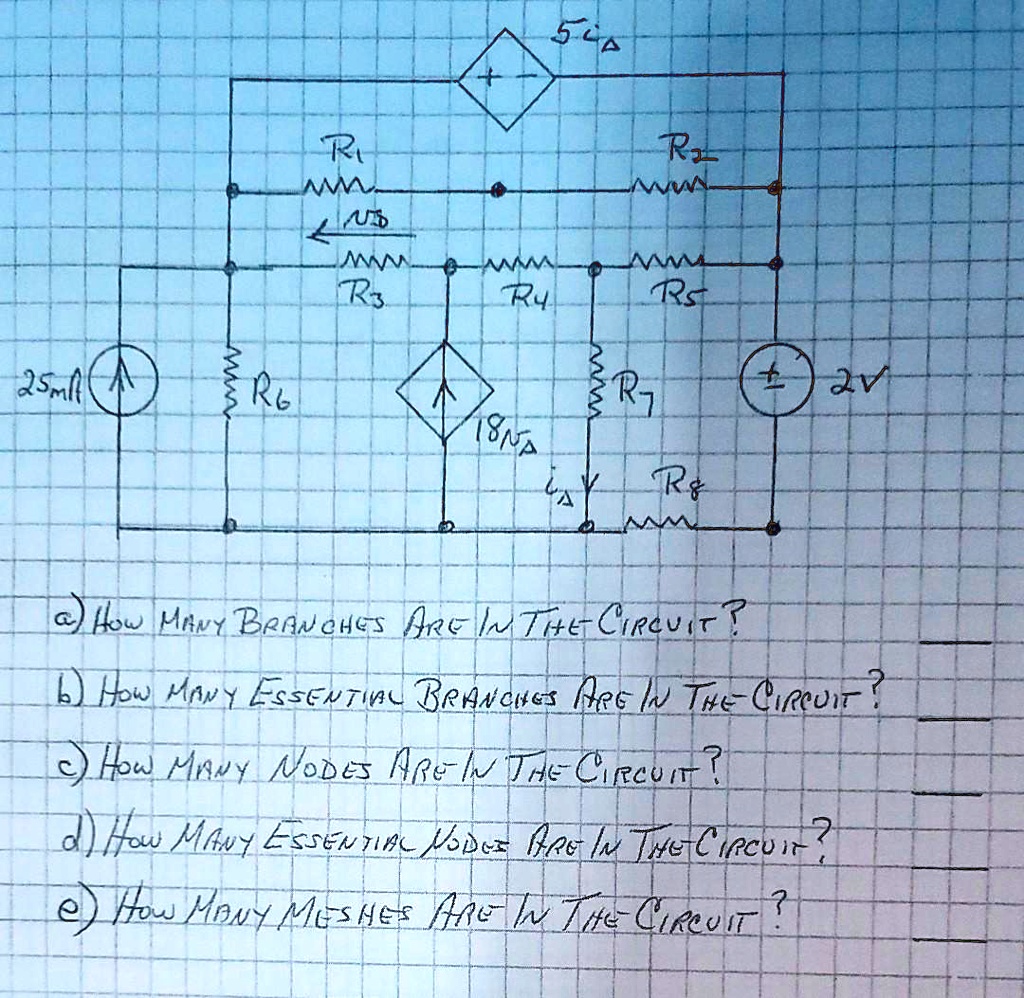 5i△
+ -
R1
R2
v△
R3
R4
R5
25mA
R6
18v△
R7
±
2V
i△
R8
a) HOW MANY BRANCHES ARE IN THE CIRCUIT?
b) HOW MANY ESSENTIAL BRANCHES ARE IN THE CIRCUIT?
c) HOW MANY NODES ARE IN THE CIRCUIT?
d) HOW MANY ESSENTIAL NODES ARE IN THE CIRCUIT?
e) HOW MANY MESHES ARE IN THE CIRCUIT?